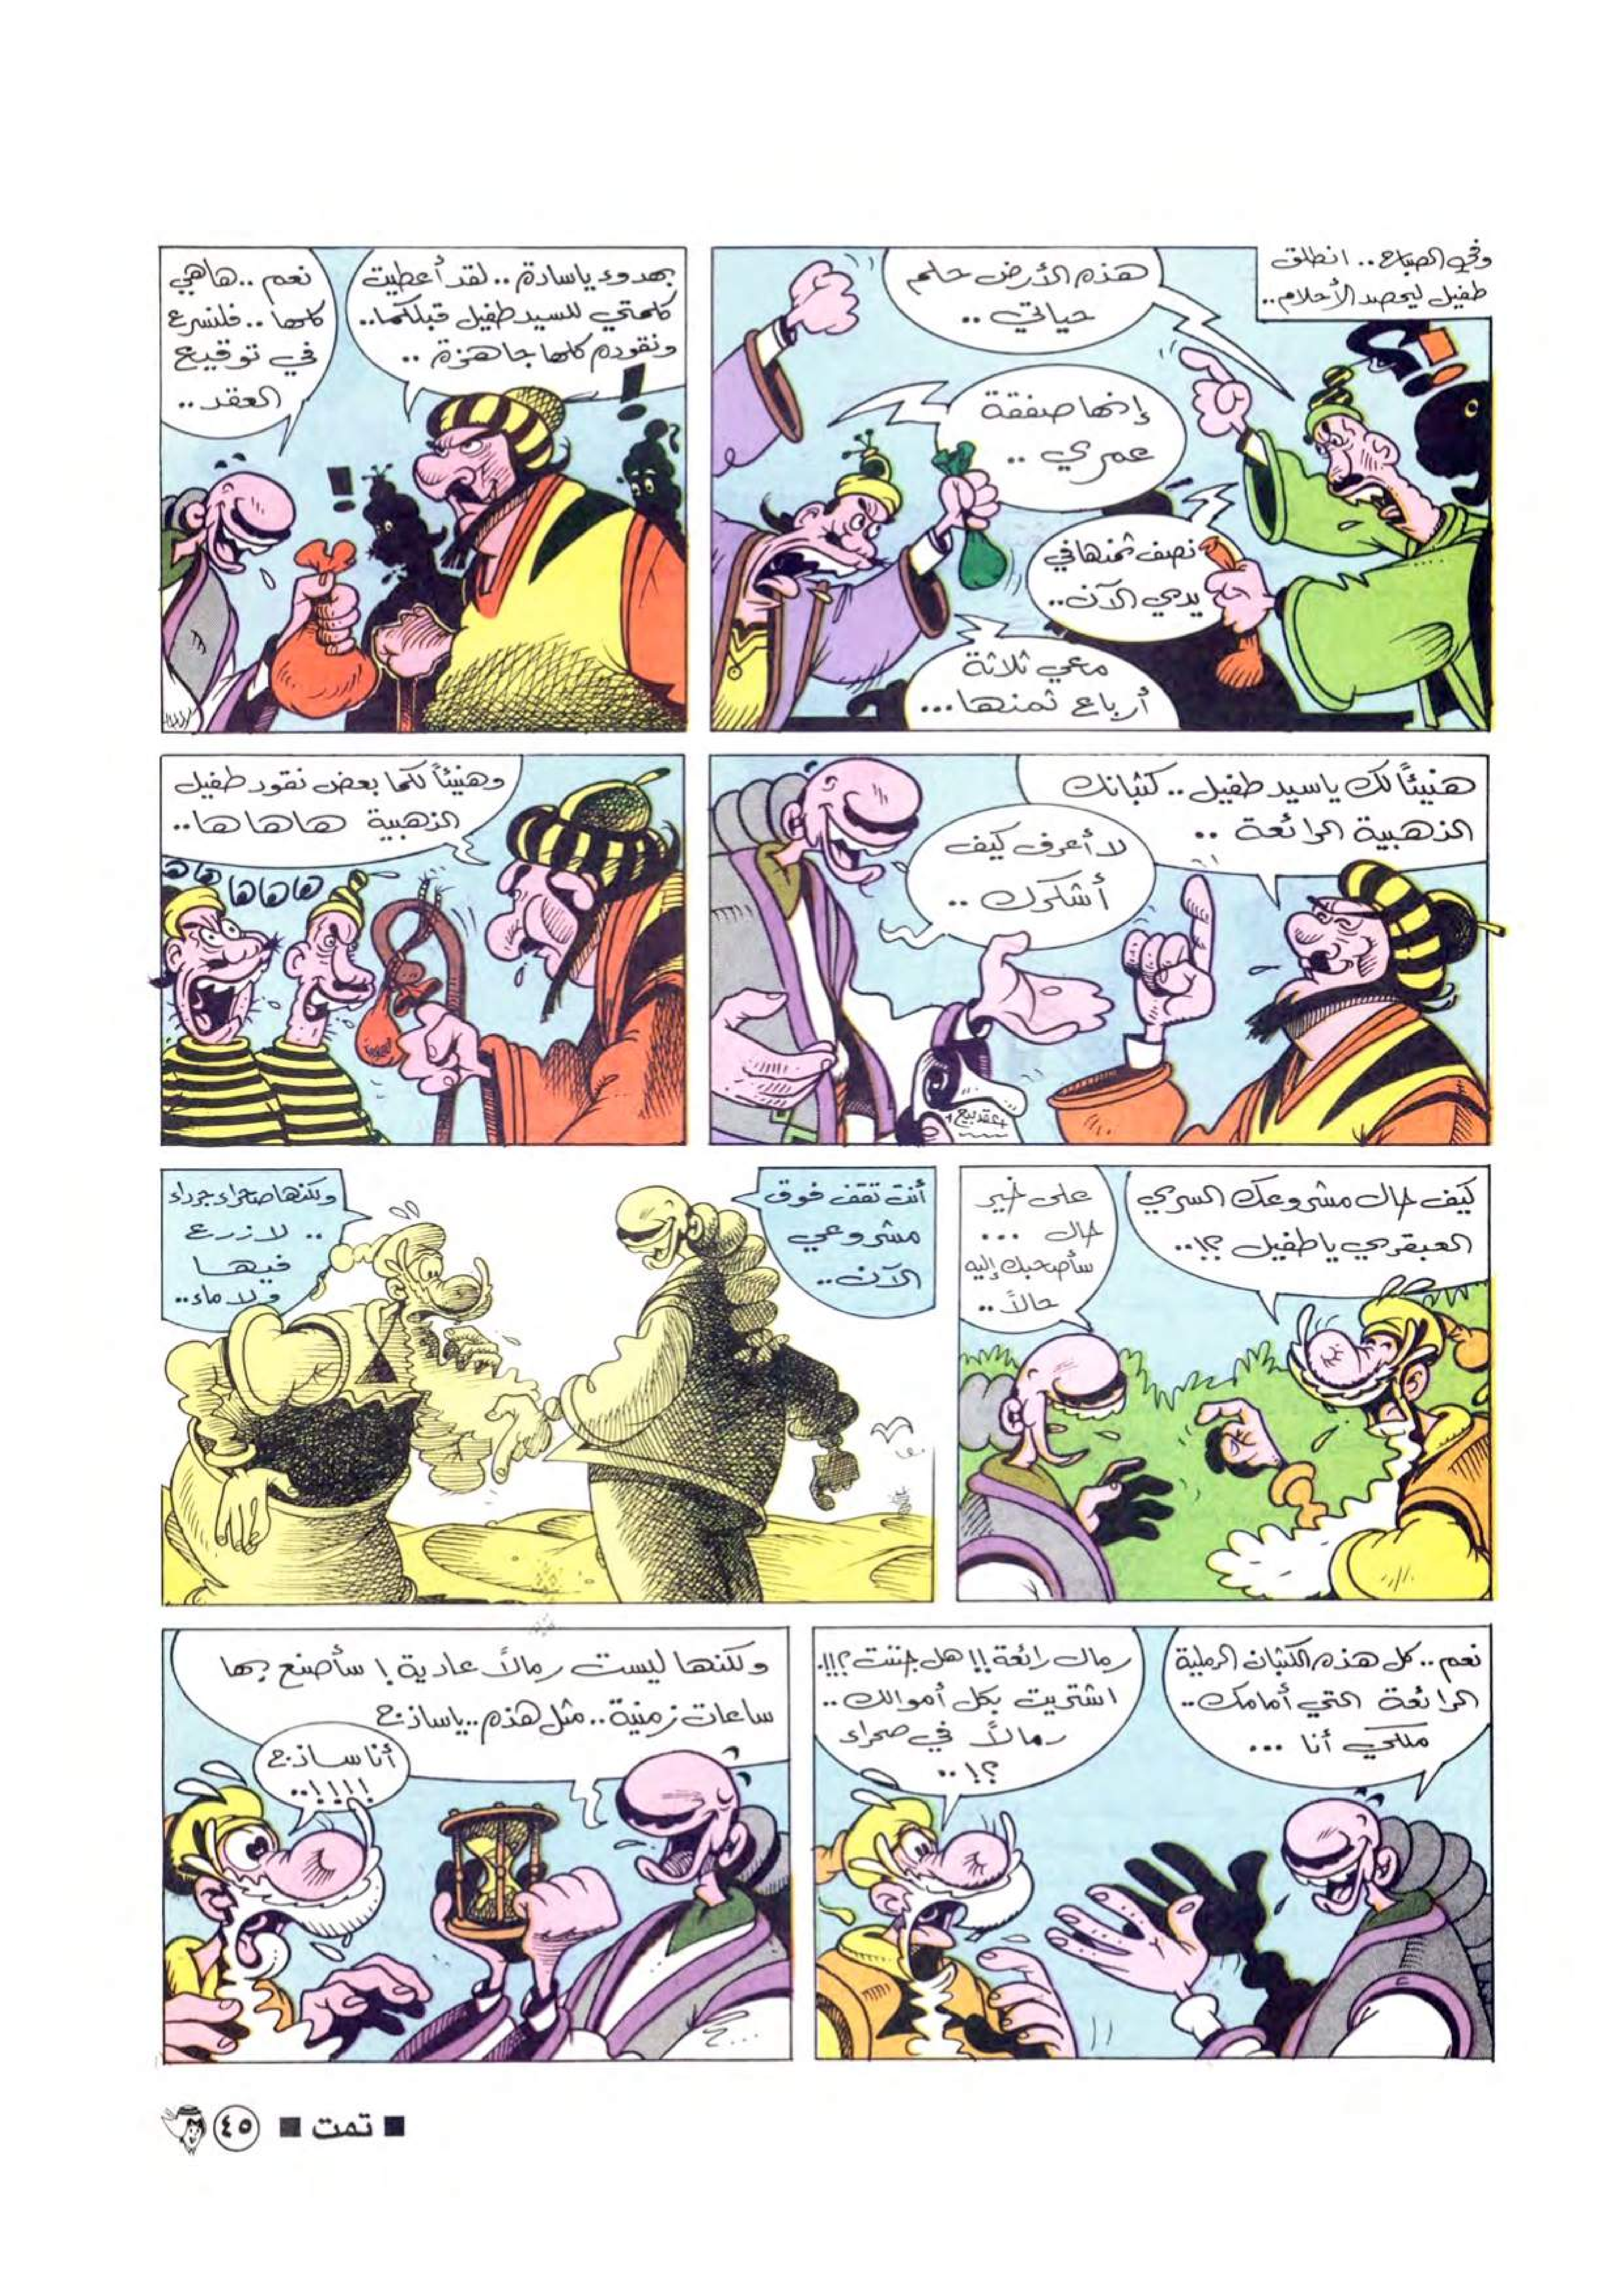 وفي الصباح.. انطلق
طفيل ليحصد الأحلام..
هذه الأرض حلم
حياتي ..
إنها صفقة
عمري ..
نصف ثمنها في
يدي الآن..
معي ثلاثة
أرباع ثمنها...
بهدوء ياسادة.. لقد أعطيت
كلمتي للسيد طفيل قبلكما..
ونقوده كلها جاهزة ..
نعم ..هاهي
كلها.. فلنسرع
في توقيع
العقد..
هنيئاً لك ياسيد طفيل.. كثبانك
الذهبية الرائعة ..
لا أعرف كيف
أشكرك ..
عقد بيع
وهنيئاً لكما بعض نقود طفيل
الذهبية هاهاها..
هاهاها
هاها
كيف حال مشروعك السري
العبقري ياطفيل ؟!..
على خير
حال ...
سأصحبك إليه
حالاً ..
أنت تقف فوق
مشروعي
الآن..
ولكنها صحراء جرداء
.. لا زرع
فيها
ولا ماء..
نعم.. كل هذه الكثبان الرملية
الرائعة التي أمامك..
ملكي أنا ...
رمال رائعة!! هل جننت؟!!.
اشتريت بكل أموالك..
رمالاً في صحراء
؟!..
ولكنها ليست رمالاً عادية! سأصنع بها
ساعات زمنية.. مثل هذه.. ياساذج
أنا ساذج
!!!!..
■ تمت ■ ٤٥